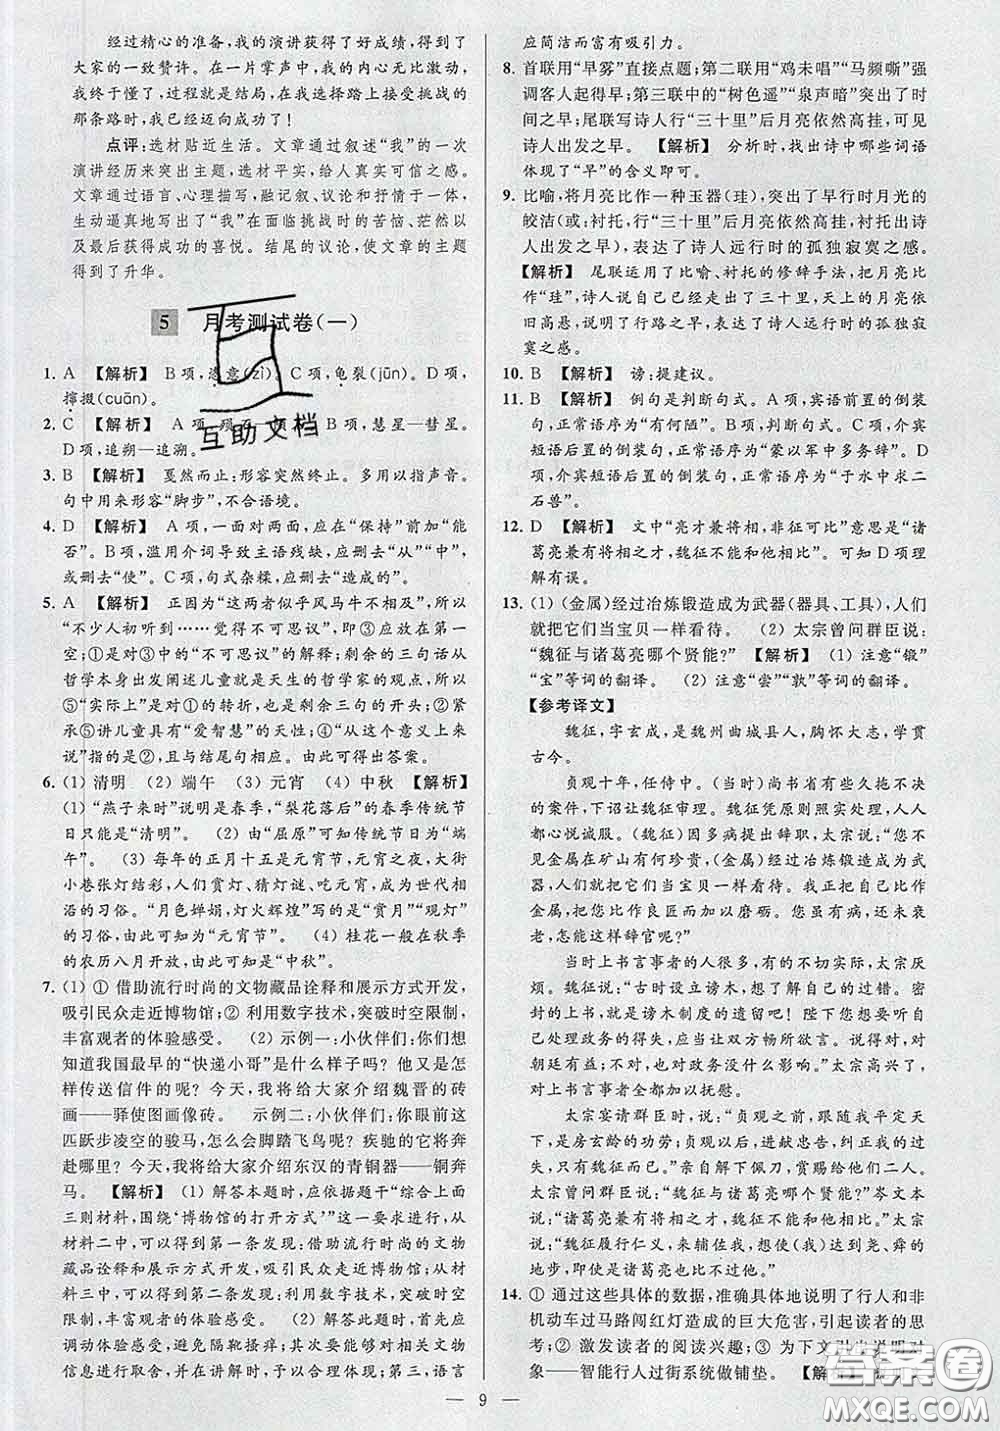 经过精心的准备，我的演讲获得了好成绩，得到了
大家的一致赞许。在一片掌声中，我的内心无比激动，
我终于懂了，过程就是结局，在我选择踏上接受挑战的
那条路时，我已经迈向成功了！
点评：选材贴近生活。文章通过叙述“我”的一次
演讲经历来突出主题，选材平实，给人真实可信之感。
文章通过语言、心理描写，融记叙、议论和抒情于一体，
生动逼真地写出了“我”在面临挑战时的苦恼、茫然以
及最后获得成功的喜悦。结尾的议论，使文章的主题
得到了升华。
5 月考测试卷（一）
1. A 【解析】 B项，恣意(zì)。C项，龟裂(jūn)。D项，
撺掇(cuān)。
2. C 【解析】 A项，
B项，慧星—彗星。
D项，追朔—追溯。
3. B 【解析】 戛然而止：形容突然终止。多用以指声音。
句中用来形容“脚步”，不合语境。
4. D 【解析】 A项，一面对两面，应在“保持”前加“能
否”。B项，滥用介词导致主语残缺，应删去“从”“中”，
或删去“使”。C项，句式杂糅，应删去“造成的”。
5. A 【解析】 正因为“这两者似乎风马牛不相及”，所以
“不少人初听到……觉得不可思议”，即③应放在第一
空；①是对③中的“不可思议”的解释；剩余的三句话从
哲学本身出发阐述儿童就是天生的哲学家的观点，所以
⑤“实际上”是对①的转折，也是剩余三句的开头；②紧
承⑤讲儿童具有“爱智慧”的天性；④“从这个意义上来
说”指的是②，且与结尾句相应。由此可得出答案。
6. (1) 清明 (2) 端午 (3) 元宵 (4) 中秋 【解析】
(1) “燕子来时”说明是春季，“梨花落后”的春季传统节
日只能是“清明”。 (2) 由“屈原”可知传统节日为“端
午”。 (3) 每年的正月十五是元宵节，元宵之夜，大街
小巷张灯结彩，人们赏灯、猜灯谜、吃元宵，成为世代相
沿的习俗。“月色婵娟，灯火辉煌”写的是“赏月”“观灯”
的习俗，由此可知为“元宵节”。 (4) 桂花一般在秋季
的农历八月开放，由此可知是“中秋”。
7. (1) ① 借助流行时尚的文物藏品诠释和展示方式开发，
吸引民众走近博物馆；② 利用数字技术，突破时空限制，
丰富观者的体验感受。 (2) 示例一：小伙伴们：你们想
知道我国最早的“快递小哥”是什么样子吗？他们是怎
样传送信件的呢？今天，我将给大家介绍魏晋的砖
画——驿使图画像砖。 示例二：小伙伴们：你眼前这
匹跃步凌空的骏马，怎么会脚踏飞鸟呢？疾驰的它将奔
赴哪里？今天，我将给大家介绍东汉的青铜器——铜奔
马。 【解析】 (1) 解答本题时，应依据题干“综合上面
三则材料，围绕‘博物馆的打开方式’”这一要求进行，从
材料二中，可以得到第一条发现：借助流行时尚的文物
藏品诠释和展示方式开发，吸引民众走近博物馆；从材
料三中，可以得到第二条发现：利用数字技术，突破时空
限制，丰富观者的体验感受。 (2) 解答此题，首先应
调动体验感受，避免隔靴搔痒；其次要能够对相关文物
信息进行取舍，并在讲解时，予以合理体现；第三，语言
应简洁而富有吸引力。
8. 首联用“早雾”直接点题；第二联用“鸡未唱”“马频嘶”强
调客人起得早；第三联中的“树色遥”“泉声暗”突出了行
路之早；尾联写诗人行“三十里”后月亮依然高挂，可见
诗人出发之早。 【解析】 分析时，找出诗中哪些词语
体现了“早”的含义即可。
9. 比喻，将月亮比作一种玉器（珪），突出了早行时月光的
皎洁（或：衬托，行“三十里”后月亮依然高挂，衬托出诗
人出发之早），表达了诗人远行时的孤独寂寞之感。
【解析】 尾联运用了比喻、衬托的修辞手法，把月亮比
作“珪”，诗人说自己已经走了三十里，天上的月亮依
旧高悬，说明了行路之早，表达了诗人远行时的孤独寂
寞之感。
10. B 【解析】 谤：提建议。
11. B 【解析】 例句是判断句式。A项，宾语前置的倒装
句，正常语序为“有何陋”。B项，判断句式。C项，状语
后置的倒装句，正常语序为“蒙以军中多务辞”。D项，
介宾短语后置的倒装句，正常语序为“于水中求二
石兽”。
12. D 【解析】 文中“亮才兼将相，非征可比”意思是“诸
葛亮兼有将相之才，魏征不能和他相比”。可知D项理
解有误。
13. (1) （金属）经过冶炼锻造成为武器（器具、工具），人们
就把它们当宝贝一样看待。 (2) 太宗曾问群臣说：
“魏征与诸葛亮哪个贤能？” 【解析】 (1) 注意“锻”
“宝”等词的翻译。 (2) 注意“尝”“孰”等词的翻译。
【参考译文】
魏征，字玄成，是魏州曲城县人，胸怀大志，贯学
古今。
贞观十年，任侍中。（当时）尚书省有些久拖不决
的案件，下诏让魏征审理。魏征凭原则照实处理，人人
都心悦诚服。（魏征）因多病提出辞职，太宗说：“您不
见金属在矿山有何珍贵，（金属）经过冶炼锻造成为武
器，人们就把它们当宝贝一样看待。我正把自己比作
金属，把您比作良匠而加以磨砺。您虽有病，还未衰
老，怎能这样辞官呢？”
当时上书言事者的人很多，有的不切实际，太宗厌
烦。魏征说：“古时设立谤木，想了解自己的过错。密
封的上书，就是谤木制度的遗留吧！陛下您想了解自
己处理政务的得失，应当让双方畅所欲言。说得对，对
朝廷有益；说得不对，对政务没什么影响。”太宗高兴了，
对上书言事者都加以抚慰。
太宗宴请群臣时，说：“贞观之前，跟随我平定天下
的，是房玄龄的功劳；贞观以后，献纳忠言，纠正我的过
失，只有魏征。”亲自解下佩刀，赏赐给他们二人。
太宗曾问群臣说：“魏征与诸葛亮哪个贤能？”岑文本
说：“诸葛亮兼有将相之才，魏征不能和他相比。”太宗
说：“魏征履行仁义，来辅佐我，想使（我）达到尧、舜的
地步，即使是诸葛亮也比不过他。”
14. ① 通过这些具体的数据，准确具体地说明了行人和非
机动车过马路闯红灯造成的巨大危害，引起读者的思
考；② 激发读者的阅读兴趣；③ 为下文引出说明对
象——智能行人过街系统做铺垫。 【解析】
— 9 —
互助文档
答案圈
MXQE.COM